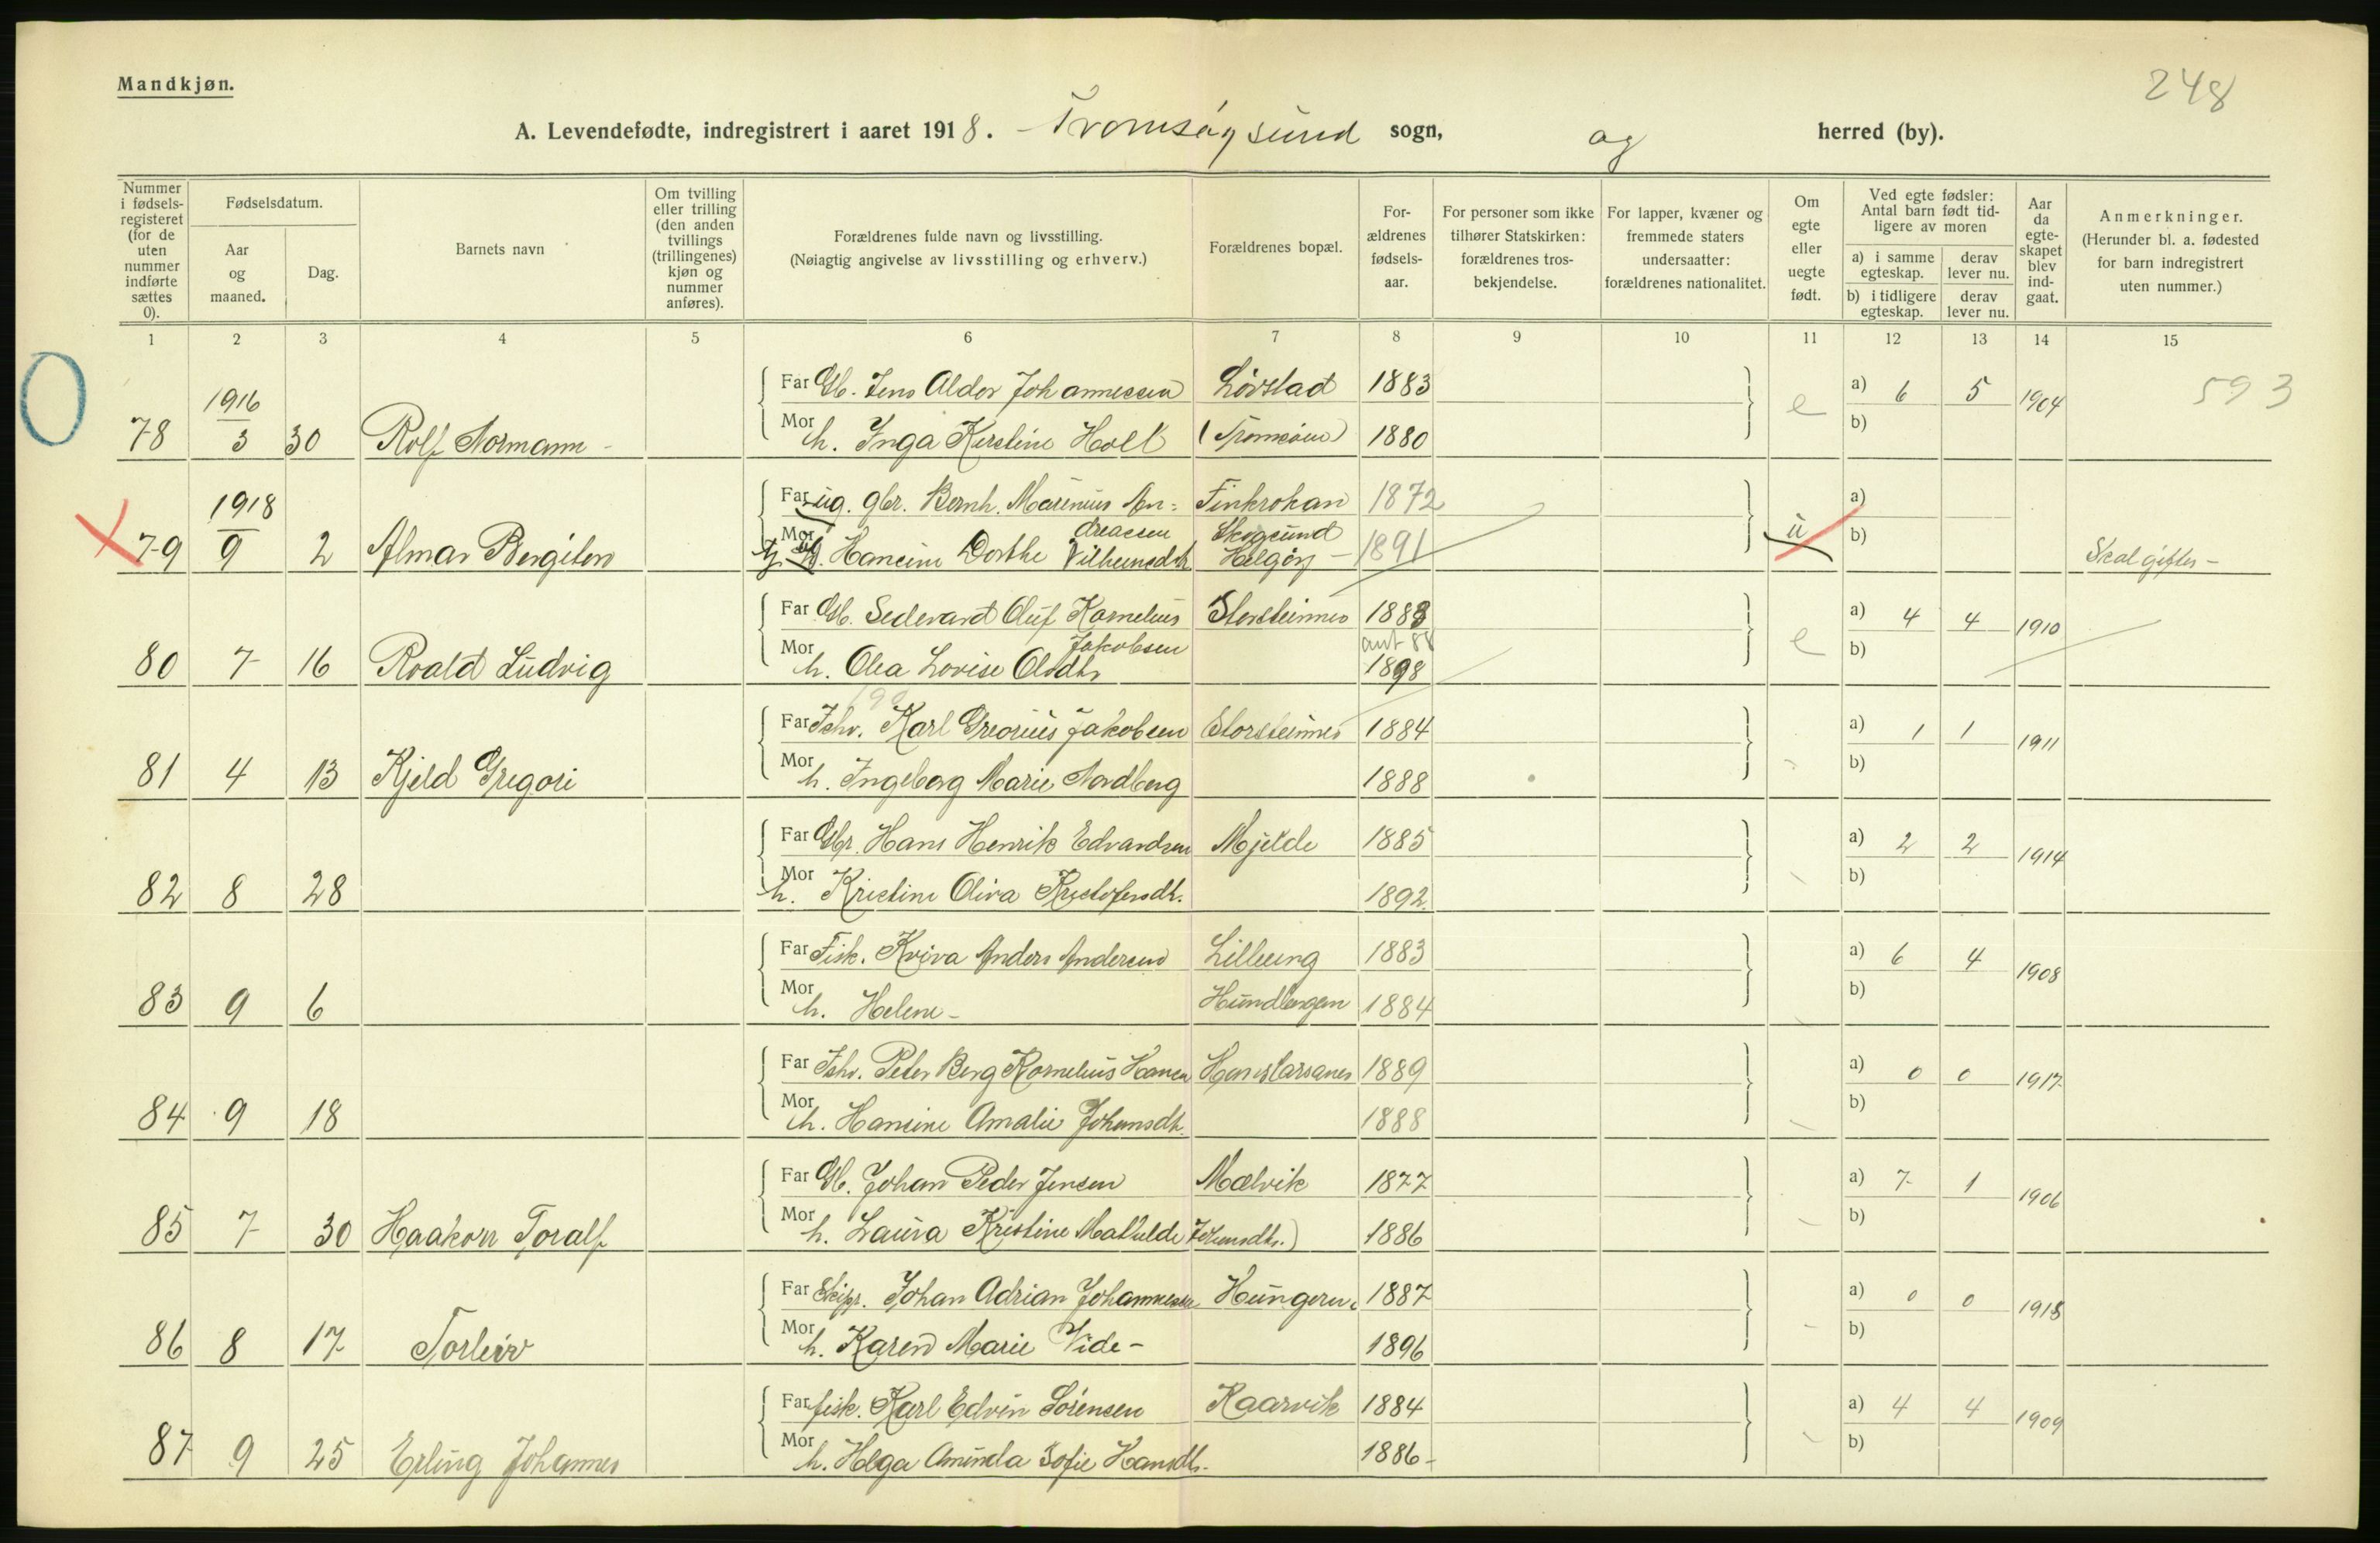 Mandkjøn.
248
A. Levendefødte, indregistrert i aaret 1918. Tromsøysund sogn, og herred (by).
Nummer i fødsels-registeret (for de uten nummer indførte sættes 0).
Fødselsdatum.
Aar og maaned.
Dag.
Barnets navn
Om tvilling eller trilling (den anden tvillings (trillingenes) kjøn og nummer anføres).
Forældrenes fulde navn og livsstilling.
(Nøiagtig angivelse av livsstilling og erhverv.)
Forældrenes bopæl.
For-ældrenes fødsels-aar.
For personer som ikke tilhører Statskirken: forældrenes tros-bekjendelse.
For lapper, kvæner og fremmede staters undersaatter: forældrenes nationalitet.
Om egte eller uegte født.
Ved egte fødsler: Antal barn født tid-ligere av moren
a) i samme egteskap. derav lever nu.
b) i tidligere egteskap. derav lever nu.
Aar da egte-skapet blev ind-gaat.
Anmerkninger.
(Herunder bl. a. fødested for barn indregistrert uten nummer.)
1 2 3 4 5 6 7 8 9 10 11 12 13 14 15
Far Gb. Jens Aldor Johannessen Lövstad 1883 a) 6 5 1904 593
1916
78 3 30 Rolf Normann - Mor h. Inga Kirstine Holt (Tromsöen) 1880 e b)
1918
Far ug. gbr. Bernh. Marenius An= Finkrokan 1872 a)
dreassen Skogsund
79 9 2 Almar Bergiton Mor Hansine Dorthe Vilhelmsdtr Helgöy - 1891 u b) Skal giftes -
Far Gb. Sedevard Oluf Kornelius Storsteinnes 1888 a) 4 4 1910
Jakobsen ant 88
80 7 16 Roald Ludvig Mor h. Olea Lovise Olsdtr 1898 e b)
Far Ishv. Karl Greorius Jakobsen Storsteinnes 1884 a) 1 1 1911
81 4 13 Kjeld Gregori Mor h. Ingeborg Marie Nordberg 1888 b)
Far Gbr. Hans Henrik Edvardsen Mjelde 1885 a) 2 2 1914
82 8 28 Mor h. Kristine Oliva Kristofersdtr. 1892 b)
Far Fisk. Kviva Anders Andersen Lilleeng 1883 a) 6 4 1908
83 9 6 Mor h. Helene - Hundbergan 1884 b)
Far Ishv. Peter Berg Kornelius Hansen Hanslarsanes 1889 a) 0 0 1917
84 9 18 Mor h. Hansine Amalie Johansdtr. 1888 b)
Far Gb. Johan Peder Jensen Mælvik 1877 a) 7 1 1906
85 7 30 Haakon Toralf Mor h. Laura Kristine Mathilde 1886 b)
Far Skipr. Johan Adrian Johannessen Hungeren. 1887 a) 0 0 1918
86 8 17 Torleiv Mor h. Karen Marie Vide - 1896 b)
Far fisk. Karl Edvin Sörensen Kaarvik 1884 a) 4 4 1909
87 9 25 Erling Johannes Mor h. Helga Aminda Sofie Hansdtr. 1886 - b)